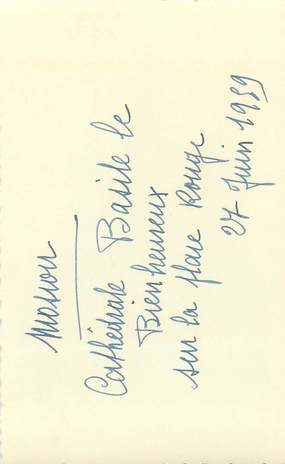 Moscou
Cathédrale Basile le
Bienheureux
sur la place Rouge
27 Juin 1959